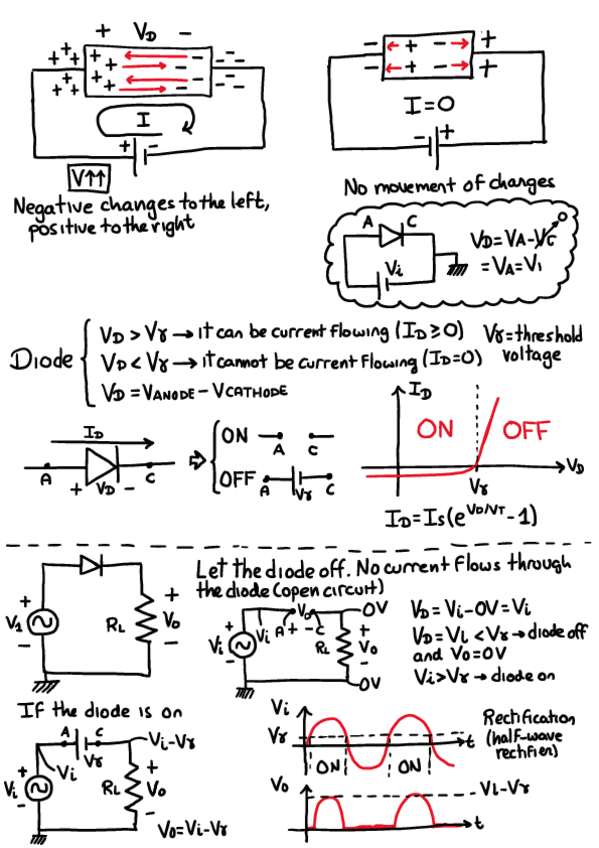 + VD -
I
+ -
V↑↑
Negative changes to the left,
positive to the right
I=0
- +
No movement of changes
A C
Vi
VD=VA-VC 0
=VA=Vi
Diode
VD > Vγ → it can be current flowing (ID ≥ 0)
VD < Vγ → it cannot be current flowing (ID=0)
VD = VANODE - VCATHODE
Vγ=threshold
voltage
ID
A + VD - C
⇒
ON A C
OFF A Vγ C
ID
ON OFF
VD
Vγ
ID=Is(e^VD/VT -1)
V1 + -
RL
+ Vo -
Let the diode off. No current flows through
the diode (open circuit)
Vi + -
Vi A + VD - C 0V
RL + Vo -
0V
VD=Vi-0V=Vi
VD=Vi <Vγ → diode off
and Vo=0V
Vi>Vγ → diode on
If the diode is on
A C
Vγ
Vi-Vγ
Vi
Vi + -
RL + Vo -
Vo=Vi-Vγ
Vi
Vγ
t
ON ON
Rectification
(half-wave
rectifier)
Vo
Vi-Vγ
t